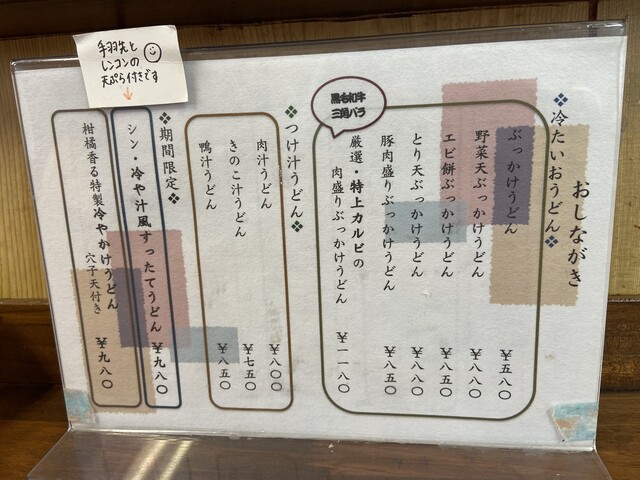 おしながき
❖冷たいおうどん❖
ぶっかけうどん ¥五八〇
野菜天ぶっかけうどん ¥八八〇
エビ餅ぶっかけうどん ¥八五〇
とり天ぶっかけうどん ¥八八〇
豚肉盛りぶっかけうどん ¥八五〇
黒毛和牛
三角バラ
厳選・特上カルビの
肉盛りぶっかけうどん ¥一一八〇
❖つけ汁うどん❖
肉汁うどん ¥八〇〇
きのこ汁うどん ¥七五〇
鴨汁うどん ¥八五〇
❖期間限定❖
シン・冷や汁風すったてうどん ¥九八〇
柑橘香る特製冷やかけうどん
穴子天付き ¥九八〇
手羽先と
レンコンの
天ぷら付きです
↓